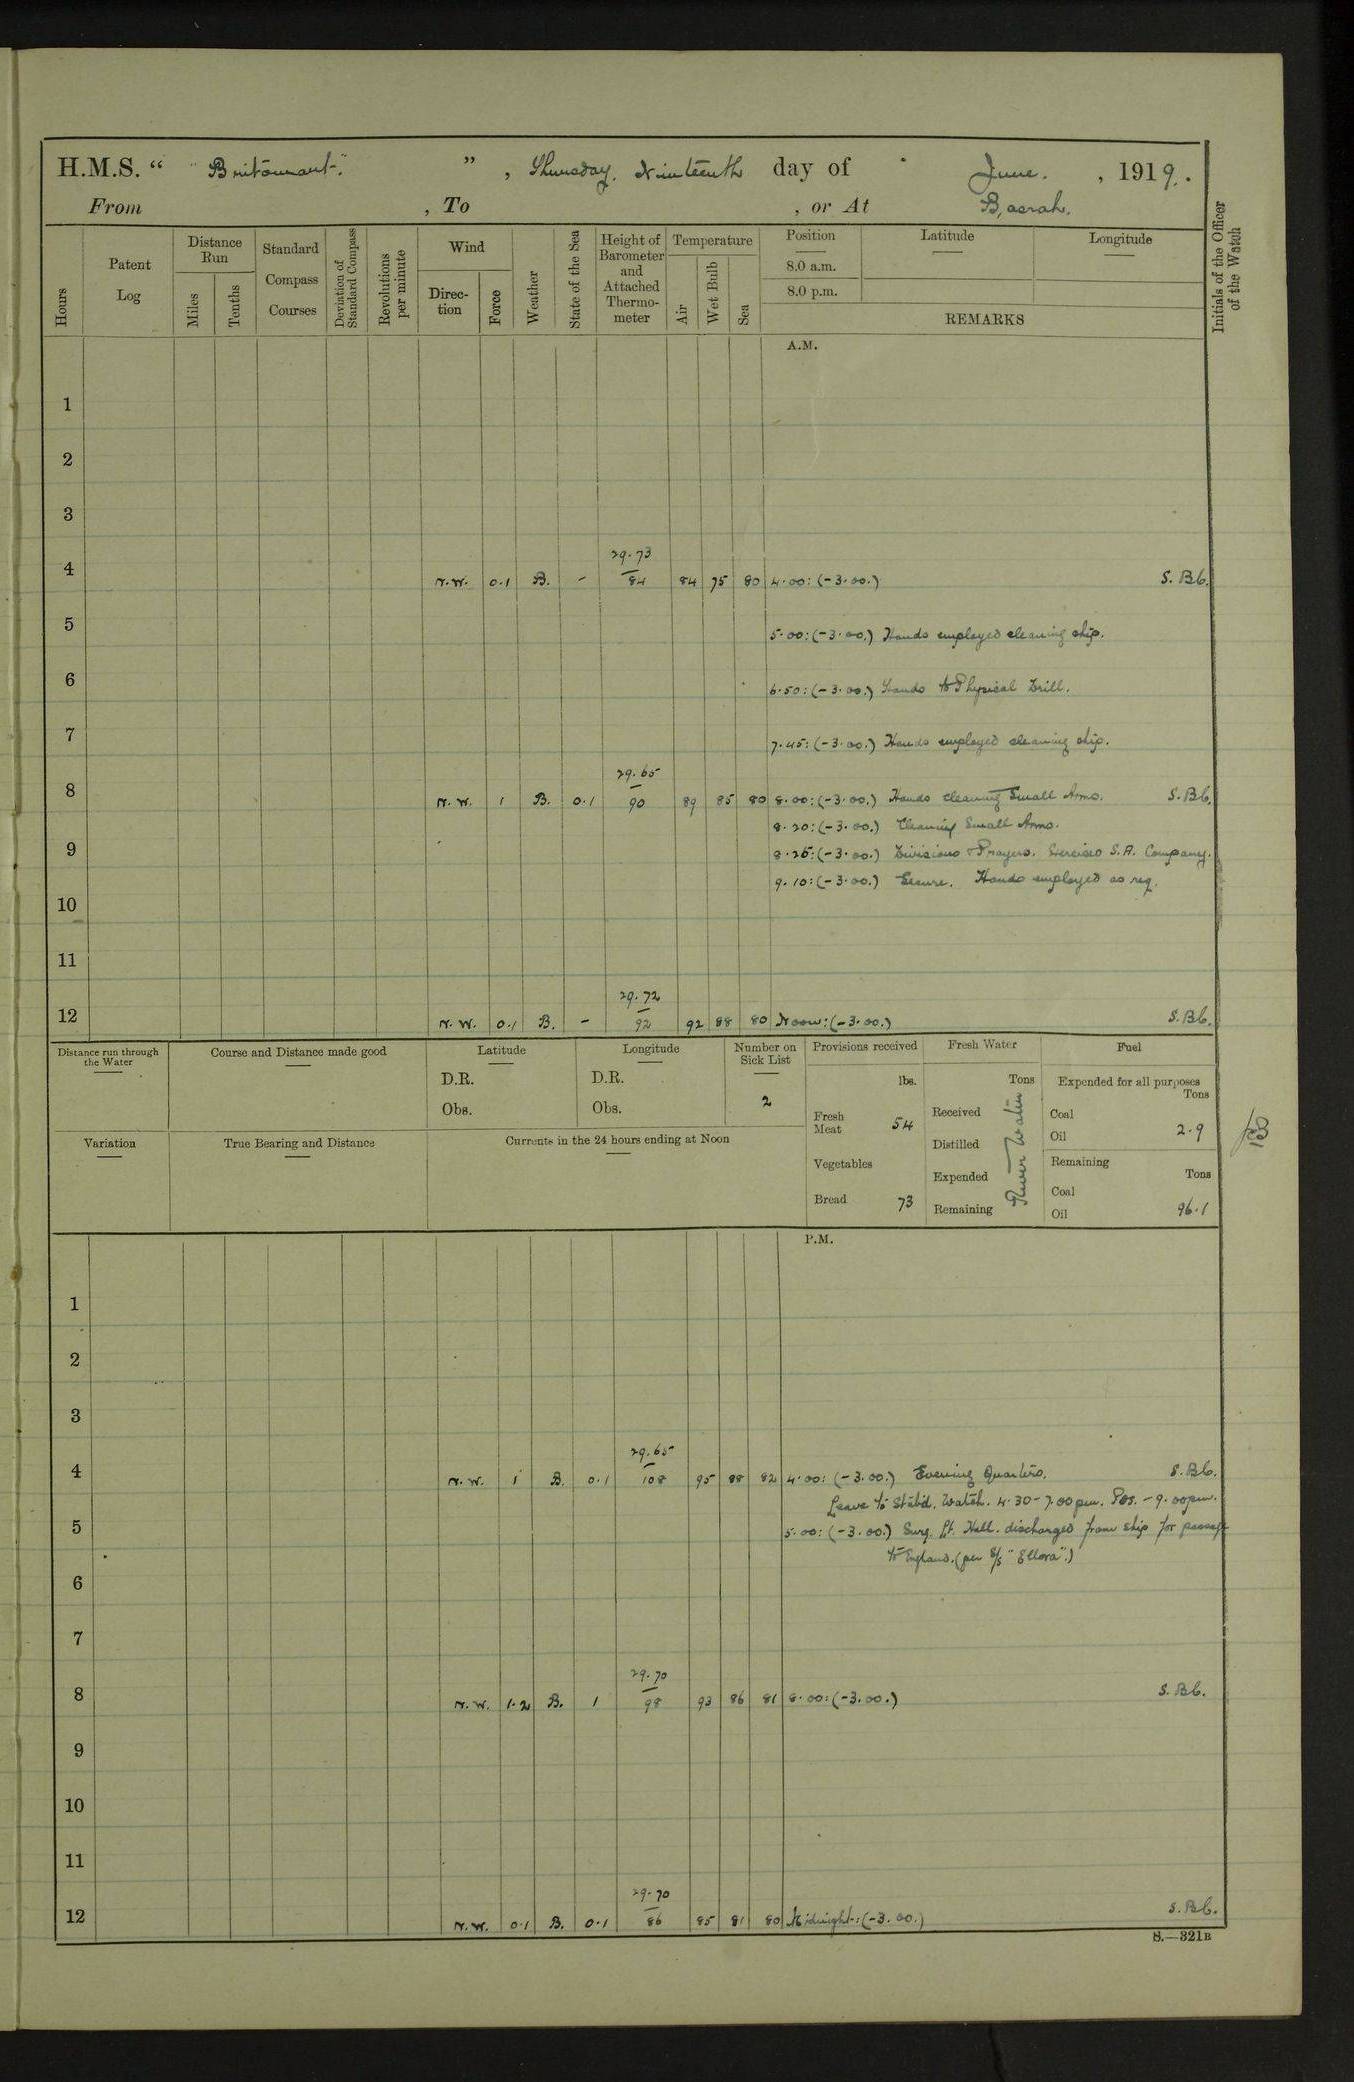 H.M.S. “ "Britomart." ” , Thursday, Nineteenth day of June. , 1919.
From , To , or At Basrah.
Hours
Patent Log
Distance Run
Miles
Tenths
Standard Compass Courses
Deviation of Standard Compass
Revolutions per minute
Wind
Direction
Force
Weather
State of the Sea
Height of Barometer and Attached Thermometer
Temperature
Air
Wet Bulb
Sea
Position
8.0 a.m.
8.0 p.m.
Latitude
Longitude
REMARKS
Initials of the Officer of the Watch
A.M.
1
2
3
29.73
4 N.W. 0.1 B. - 84 84 75 80 4.00: (-3.00.) S.Bb.
5 5.00: (-3.00.) Hands employed cleaning ship.
6 6.50: (-3.00.) Hands to Physical Drill.
7 7.45: (-3.00.) Hands employed cleaning ship.
29.65
8 N.W. 1 B. 0.1 90 89 85 80 8.00: (-3.00.) Hands cleaning Small Arms. S.Bb.
8.20: (-3.00.) Cleaning Small Arms.
9 8.25: (-3.00.) Divisions & Prayers. Exercises S.A. Company.
9.10: (-3.00.) Secure. Hands employed as req.
10
11
29.72
12 N.W. 0.1 B. - 92 92 88 80 Noon: (-3.00.) S.Bb.
Distance run through the Water
Course and Distance made good
Latitude
D.R.
Obs.
Longitude
D.R.
Obs.
Number on Sick List
2
Provisions received
lbs.
Fresh Meat 54
Vegetables
Bread 73
Fresh Water
Tons
Received
Distilled
Expended
Remaining
River Water
Fuel
Expended for all purposes
Tons
Coal
Oil 2.9
Remaining
Tons
Coal
Oil 96.1
Variation
True Bearing and Distance
Currents in the 24 hours ending at Noon
P.M.
1
2
3
29.65
4 N.W. 1 B. 0.1 108 95 88 82 4.00: (-3.00.) Evening Quarters. S.Bb.
Leave to Stab'd. Watch. 4.30-7.00pm. POs. - 9.00pm.
5 5.00: (-3.00.) Surg. Lt. Hall. discharged from ship for passage
to England. (per S/S "Ellora".)
6
7
29.70
8 N.W. 1.2 B. 1 98 93 86 81 8.00: (-3.00.) S.Bb.
9
10
11
29.70
12 N.W. 0.1 B. 0.1 86 85 81 80 Midnight: (-3.00.) S.Bb.
S.—321B